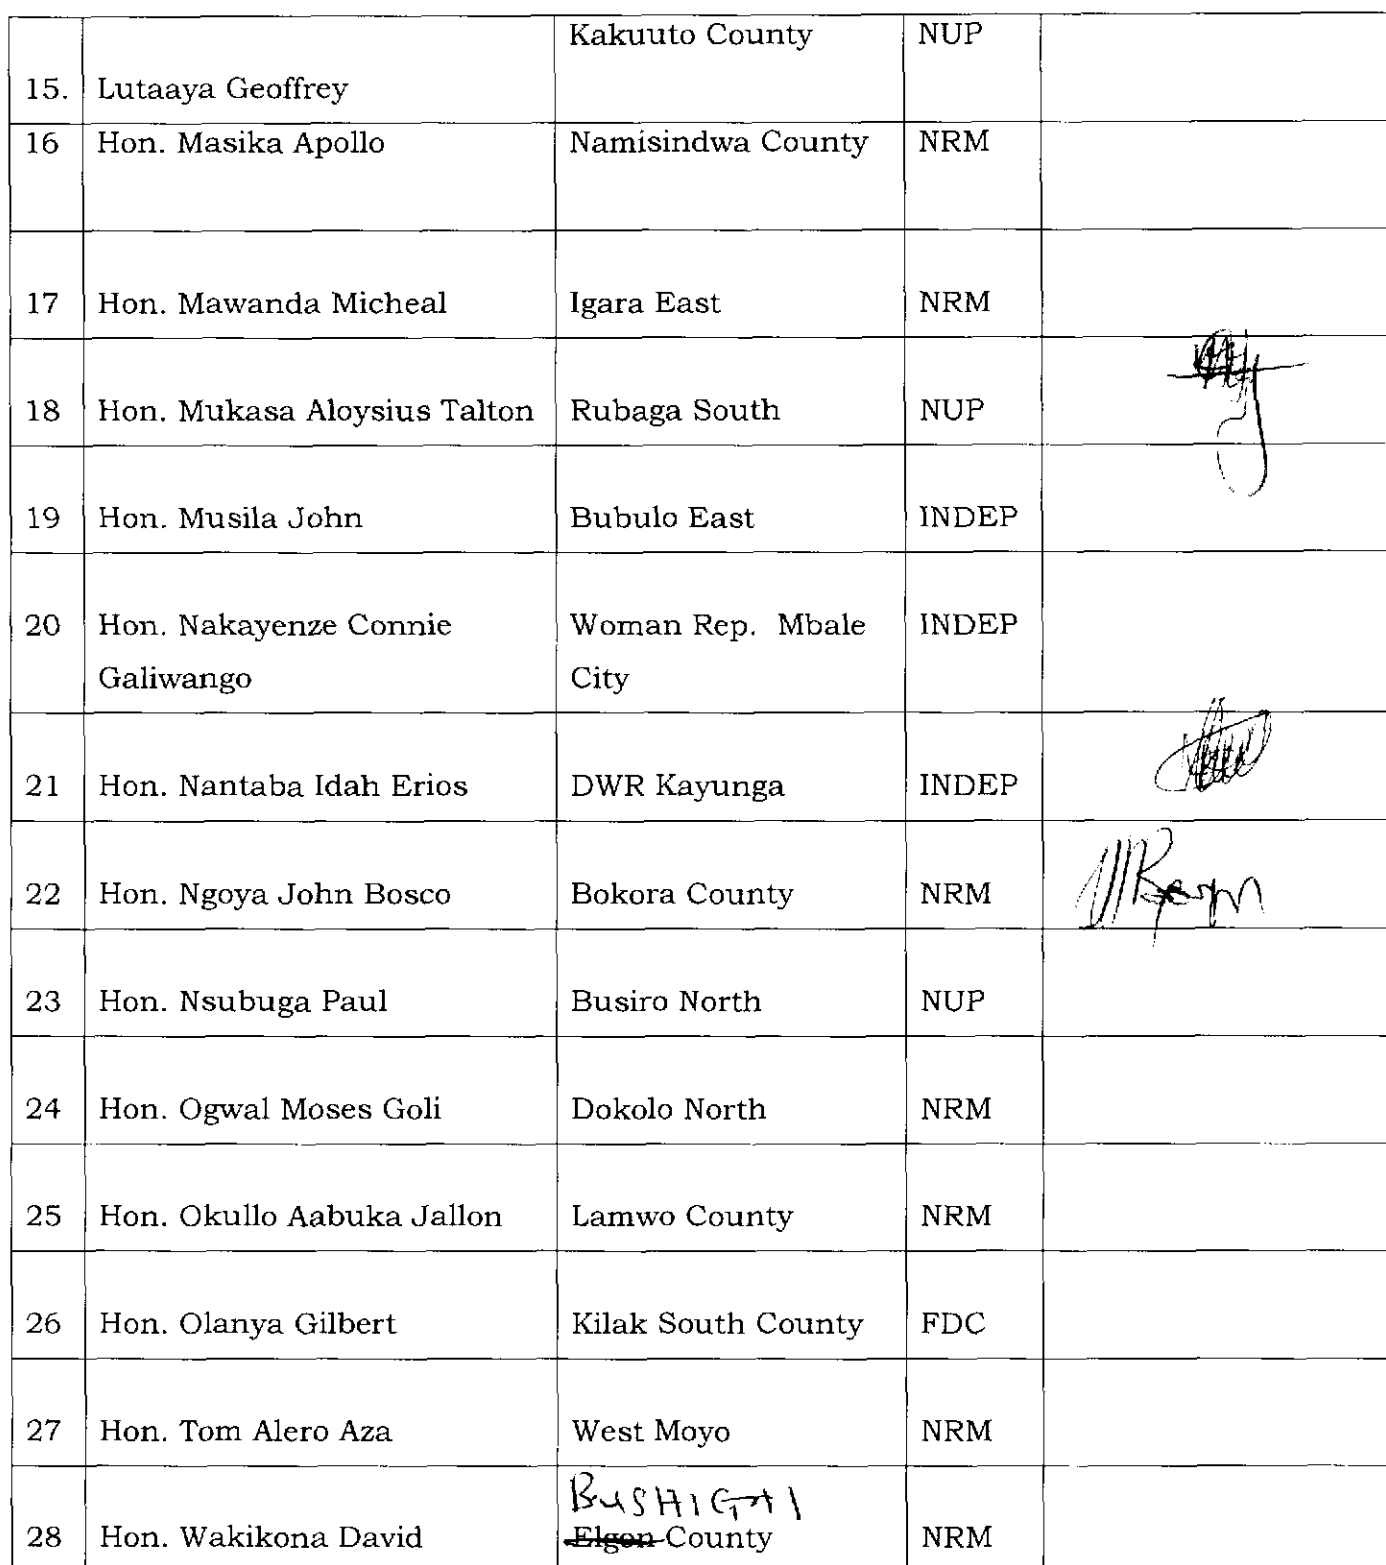 Kakuuto County NUP
15. Lutaaya Geoffrey
16 Hon. Masika Apollo Namisindwa County NRM
17 Hon. Mawanda Micheal Igara East NRM
18 Hon. Mukasa Aloysius Talton Rubaga South NUP
19 Hon. Musila John Bubulo East INDEP
20 Hon. Nakayenze Connie Woman Rep. Mbale INDEP
Galiwango City
21 Hon. Nantaba Idah Erios DWR Kayunga INDEP
22 Hon. Ngoya John Bosco Bokora County NRM
23 Hon. Nsubuga Paul Busiro North NUP
24 Hon. Ogwal Moses Goli Dokolo North NRM
25 Hon. Okullo Aabuka Jallon Lamwo County NRM
26 Hon. Olanya Gilbert Kilak South County FDC
27 Hon. Tom Alero Aza West Moyo NRM
BUSHIGAI
28 Hon. Wakikona David Elgon County NRM